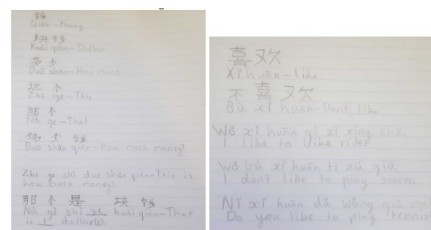 钱
Qián-Money
块钱
Kuài qián-Dollar
多少
Duō shǎo-How much
这个
Zhè ge-This
那个
Nà ge-That
多少钱
Duō shǎo qián-How much money?
Zhe ge shì duō shǎo qián-This is
how much money?
那个是 块钱
Nà gè shì kuài qián-That
is dollar(s).
喜欢
Xǐ huān-Like
不喜欢
Bù xǐ huān-Dont like
Wǒ xǐ huān qí zì xíng chē
I like to bike ride
Wǒ bù xǐ huān tī zú qiú
I dont like to play soccer
Nǐ xǐ huān dǎ wǎng qiú
Do you like to play tennis